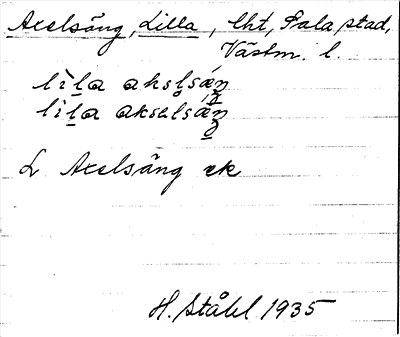 Axelsäng, Lilla, lht, Sala stad,
Västm. l.
lìla aksḷsäŋ
lila aksəlsäŋ
L Axelsäng ek
H. Ståhl 1935